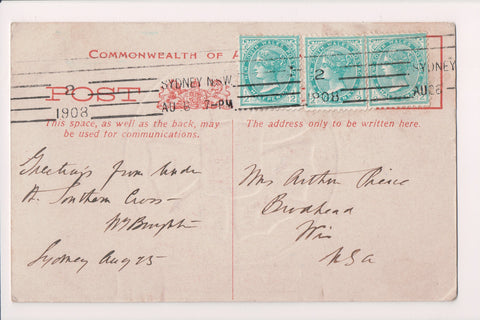 COMMONWEALTH OF A
POST
2
1908
SYDNEY N.S.W
AU 7-PM
2
1908
SYDNEY
This space, as well as the back, may
be used for communications.
The address only to be written here.
Greetings from under
Southern Cross
Sydney Aug 25
Mrs Arthur Pierce
Brodhead
Wis
USA